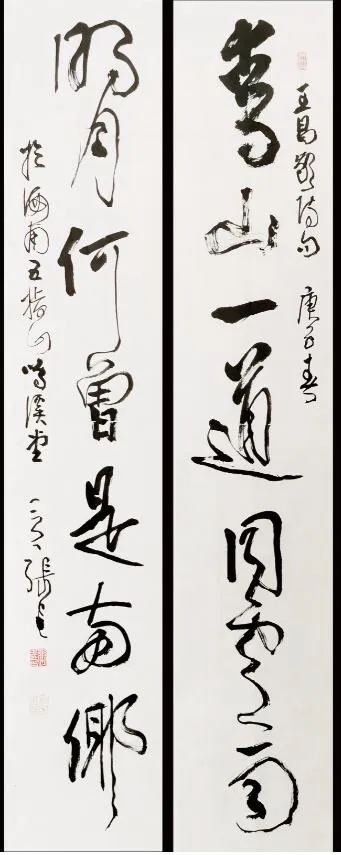 王昌齡詩句 庚子春
青山一道同雲雨
明月何曾是兩鄉
於海南五指山鳴溪堂 張